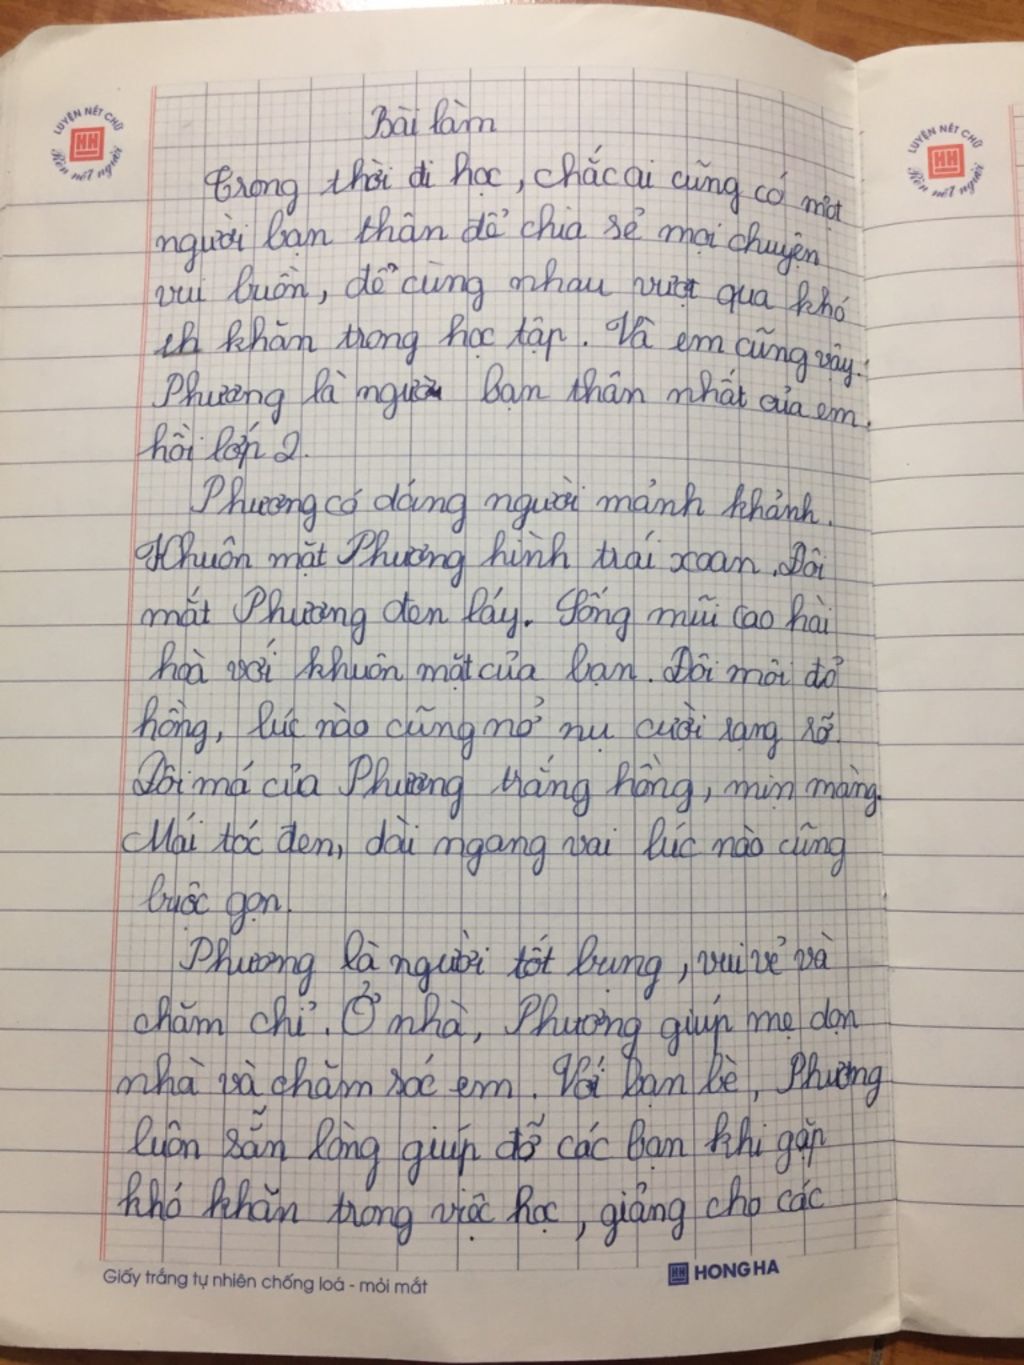 LUYỆN NÉT CHỮ
HH
Rèn nết người
LUYỆN NÉT CHỮ
HH
Rèn nết người
Bài làm
Trong thời đi học, chắc ai cũng có một
người bạn thân để chia sẻ mọi chuyện
vui buồn, để cùng nhau vượt qua khó
th khăn trong học tập. Và em cũng vậy.
Phương là người bạn thân nhất của em
hồi lớp 2.
Phương có dáng người mảnh khảnh.
Khuôn mặt Phương hình trái xoan. Đôi
mắt Phương đen láy. Sống mũi cao hài
hoà với khuôn mặt của bạn. Đôi môi đỏ
hồng, lúc nào cũng nở nụ cười rạng rỡ.
Đôi má của Phương trắng hồng, mịn màng.
Mái tóc đen, dài ngang vai lúc nào cũng
buộc gọn.
Phương là người tốt bụng, vui vẻ và
chăm chỉ. Ở nhà, Phương giúp mẹ dọn
nhà và chăm sóc em. Với bạn bè, Phương
luôn sẵn lòng giúp đỡ các bạn khi gặp
khó khăn trong việc học, giảng cho các
Giấy trắng tự nhiên chống loá - mỏi mắt
HH HONG HA